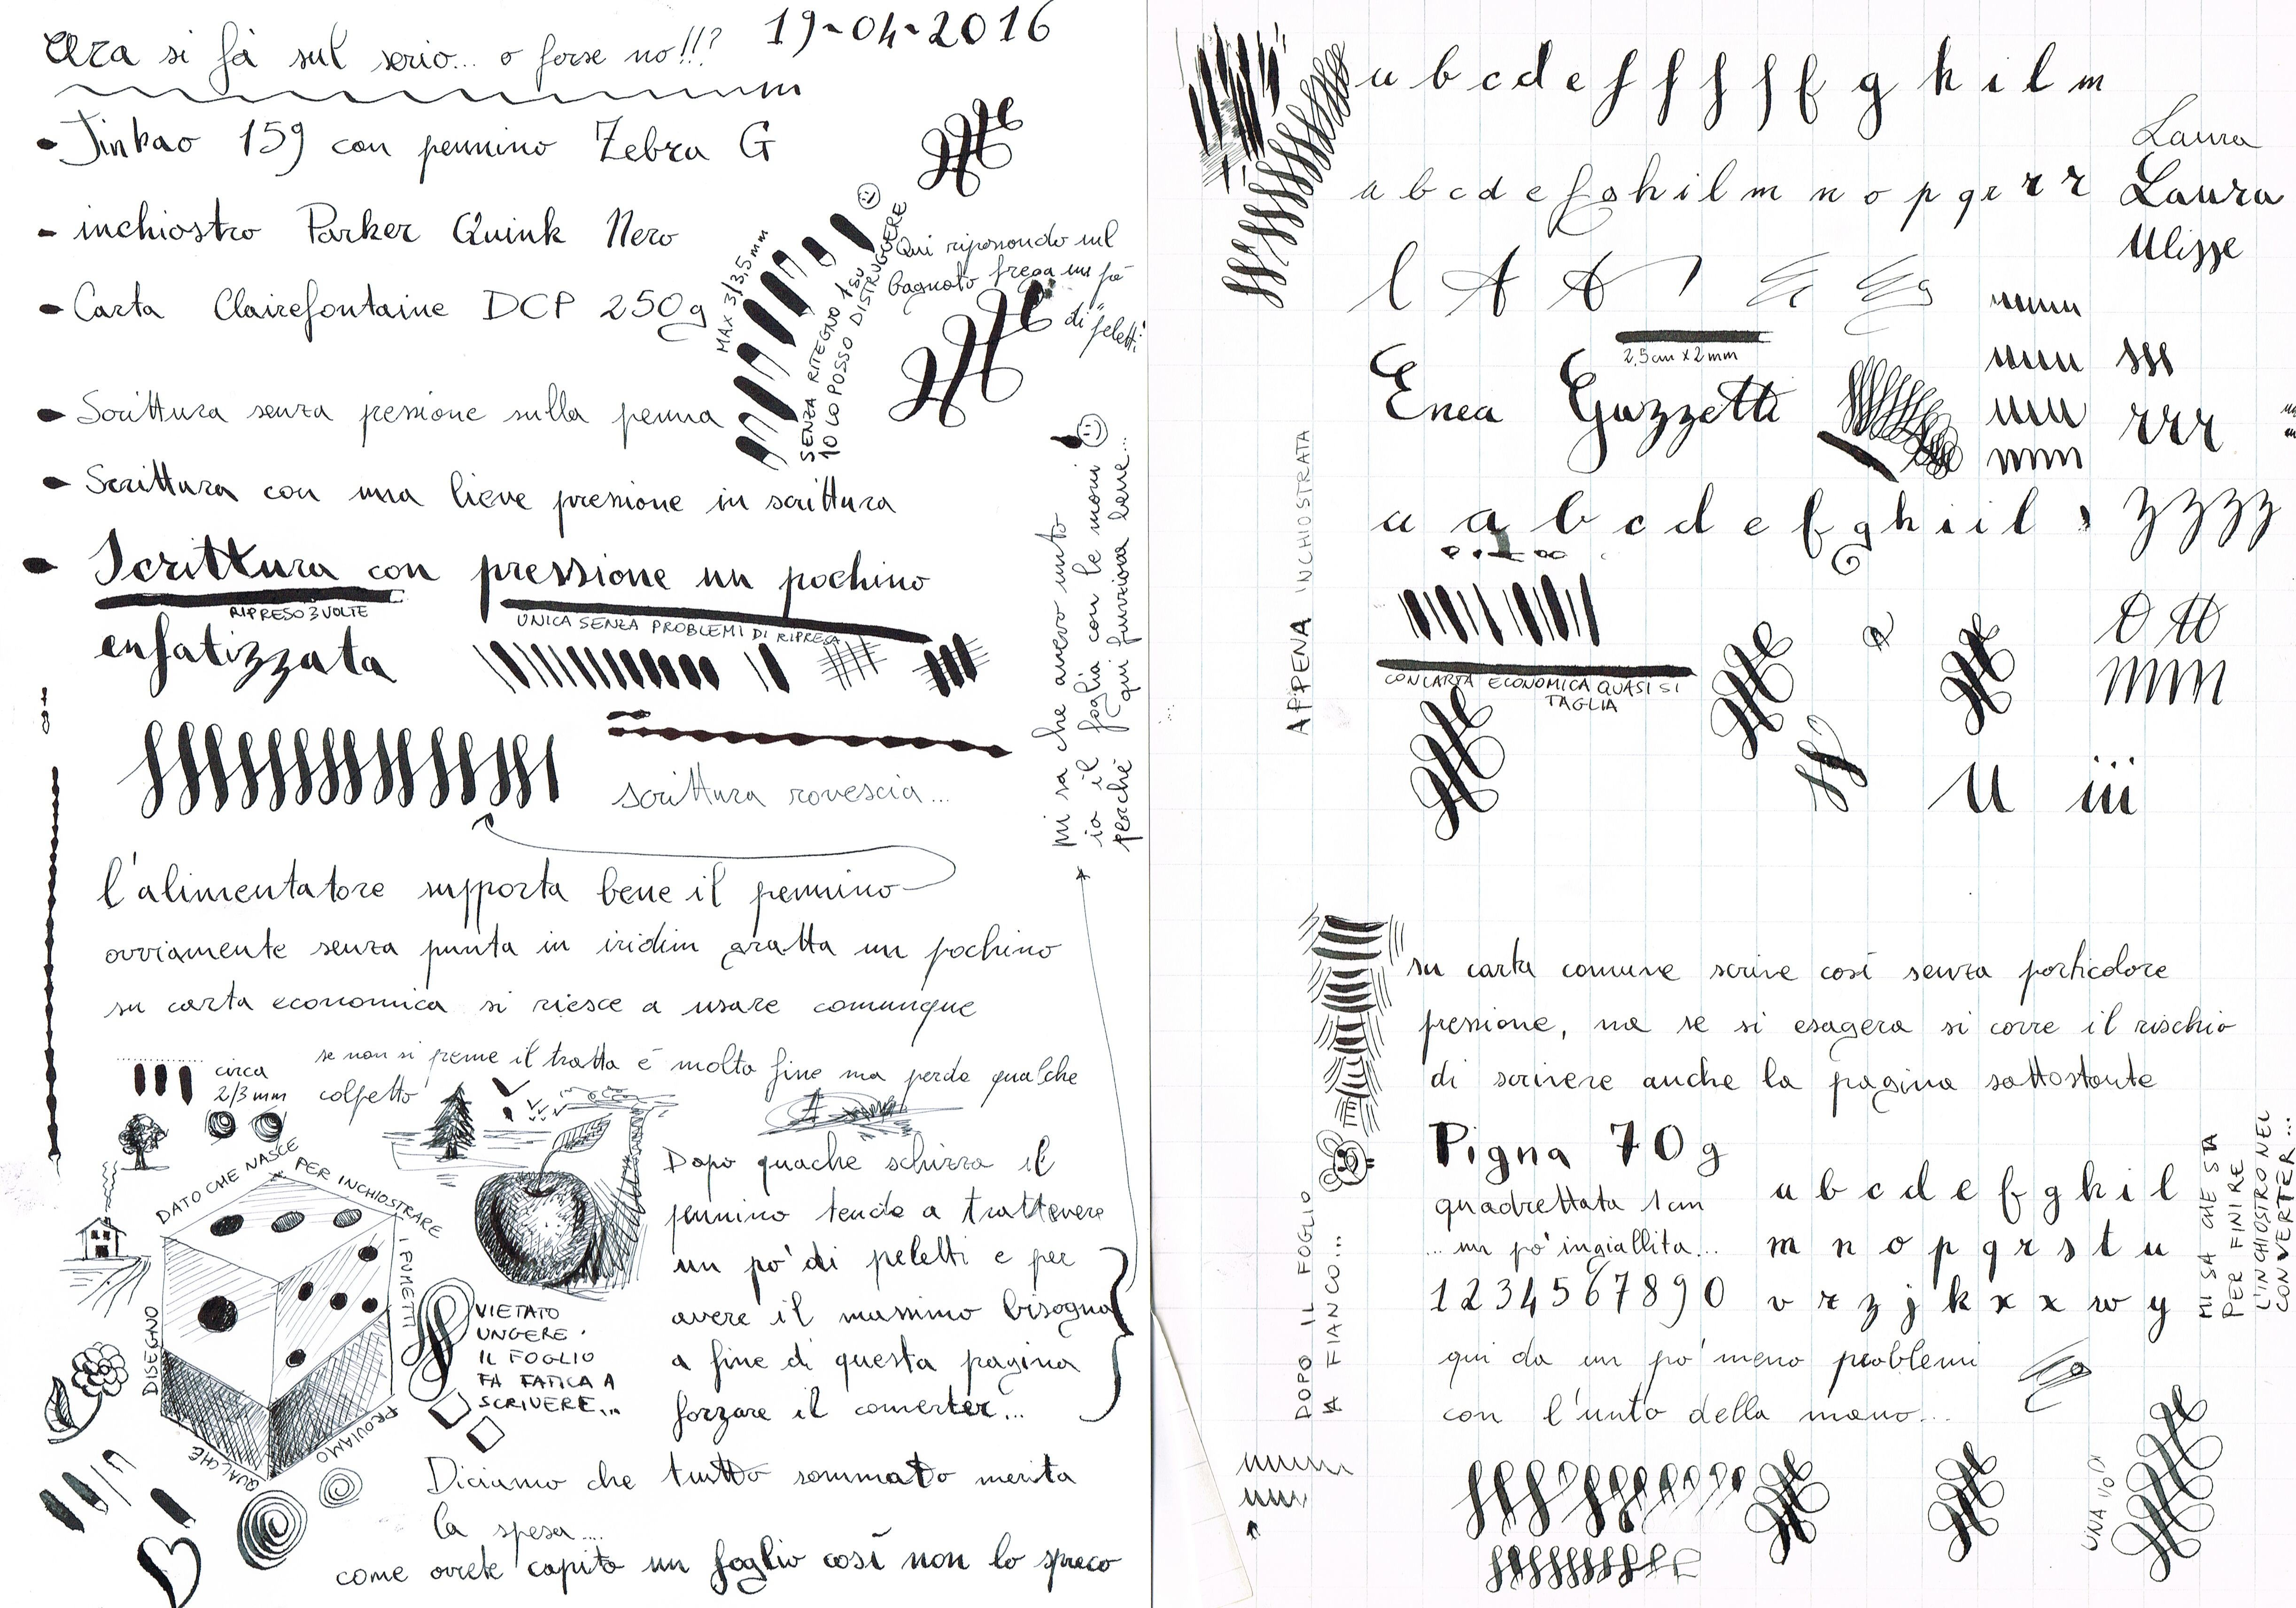 Ora si fà sul serio... o forse no!!?
19-04-2016
Jinhao 159 con pennino Zebra G
inchiostro Parker Quink Nero
Carta Clairefontaine DCP 250g
Scrittura senza pessione sulla penna
Scrittura con una lieve pressione in scrittura
Scrittura con pressione un pochino
RIPRESO 3 VOLTE
UNICA SENZA PROBLEMI DI RIPRESA
enfatizzata
MAX 3/3,5 mm
SENZA RITEGNO 1 SU
10 LO POSSO DISTRUGGERE
Qui ripassando sul
bagnato frega un pò
di "peletti"
scrittura rovescia...
mi sa che avevo unto
io il foglio con le mani
perché qui funziona bene...
l'alimentatore supporta bene il pennino
ovviamente senza punta in iridim gratta un pochino
su carta economica si riesce a usare comunque
circa
2/3 mm
se non si preme il tratto è molto fine ma perde qualche
colpetto
DATO CHE NASCE
PER INCHIOSTRARE
I FUMETTI
PROVIAMO
QUALCHE
DISEGNO
VIETATO
UNGERE.
IL FOGLIO
FA FATICA A
SCRIVERE...
Dopo quache schizzo il
pennino tende a trattenere
un po' di peletti e per
avere il massimo bisogna
a fine di questa pagina
forzare il converter...
Diciamo che tutto sommato merita
la spesa...
come avrete capito un foglio così non lo spreco
a b c d e f f f f f g h i l m
a b c d e f g h i l m n o p q r r r
Laura
Laura
Ulisse
l A A
2,5cm x 2mm
Enea Guzzetti
a a b c d e f g h i i l
zzzz
APPENA INCHIOSTRATA
CON CARTA ECONOMICA QUASI SI
TAGLIA
U iii
su carta comune scrive così senza particolare
pressione, ma se si esagera si corre il rischio
di scrivere anche la pagina sottostante
Pigna 70g
quadrettata 1cm
... un po' ingiallita...
1 2 3 4 5 6 7 8 9 0
a b c d e f g h i l
m n o p q r s t u
v r z j k x x w y
qui da un po' meno problemi
con l'unto della mano...
DOPO IL FOGLIO
A FIANCO...
MI SA CHE STA
PER FINIRE
L'INCHIOSTRO NEL
CONVERTER...